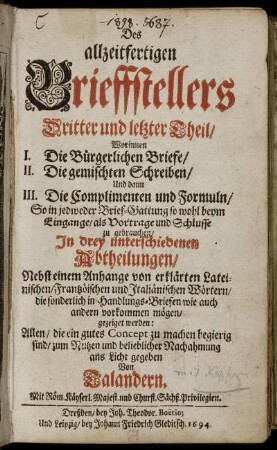 1898. 5687.
Des
allzeitfertigen
Brieffstellers
Dritter und letzter Theil/
Worinnen
I. Die Bürgerlichen Briefe/
II. Die gemischten Schreiben/
Und dann
III. Die Complimenten und Formuln/
So in jedweder Brief-Gattung so wohl beym
Eingange/als Vortrage und Schlusse
zu gebrauchen/
In drey unterschiedenen
Abtheilungen/
Nebst einem Anhange von erklärten Latei-
nischen/Frantzösischen und Italiänischen Wörtern/
die sonderlich in Handlungs-Briefen wie auch
andern vorkommen mögen/
gezeiget werden:
Allen/ die ein gutes Concept zu machen begierig
sind/ zum Nutzen und belieblicher Nachahmung
ans Licht gegeben
Von
Talandern.
Mit Röm. Käyserl. Majest. und Churfl. Sächß. Privilegien.
Dreßden/ bey Joh. Theodor. Boëtio;
Und Leipzig/ bey Johann Friedrich Gleditsch. 1694.